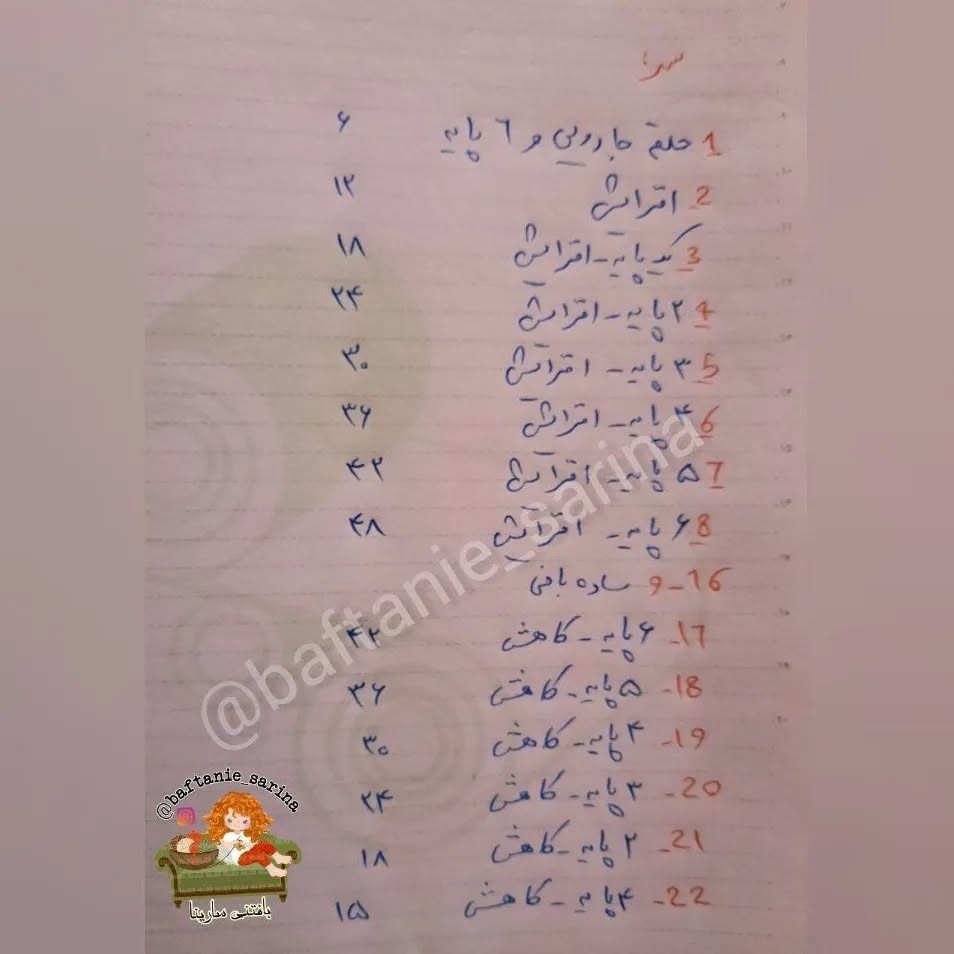 سر:
1 حلقه جادویی و ٦ پایه ۶
2 افزایش ۱۲
3 یک پایه - افزایش ۱۸
4 ۲ پایه - افزایش ۲۴
5 ۳ پایه - افزایش ۳۰
6 ۴ پایه - افزایش ۳۶
7 ۵ پایه - افزایش ۴۲
8 ۶ پایه - افزایش ۴۸
9-16 ساده بافی
17- ۶ پایه - کاهش ۴۲
18- ۵ پایه - کاهش ۳۶
19- ۴ پایه - کاهش ۳۰
20- ۳ پایه - کاهش ۲۴
21- ۲ پایه - کاهش ۱۸
22- ۴ پایه - کاهش ۱۵
@baftanie_sarina
@baftanie_sarina
بافتنی سارینا